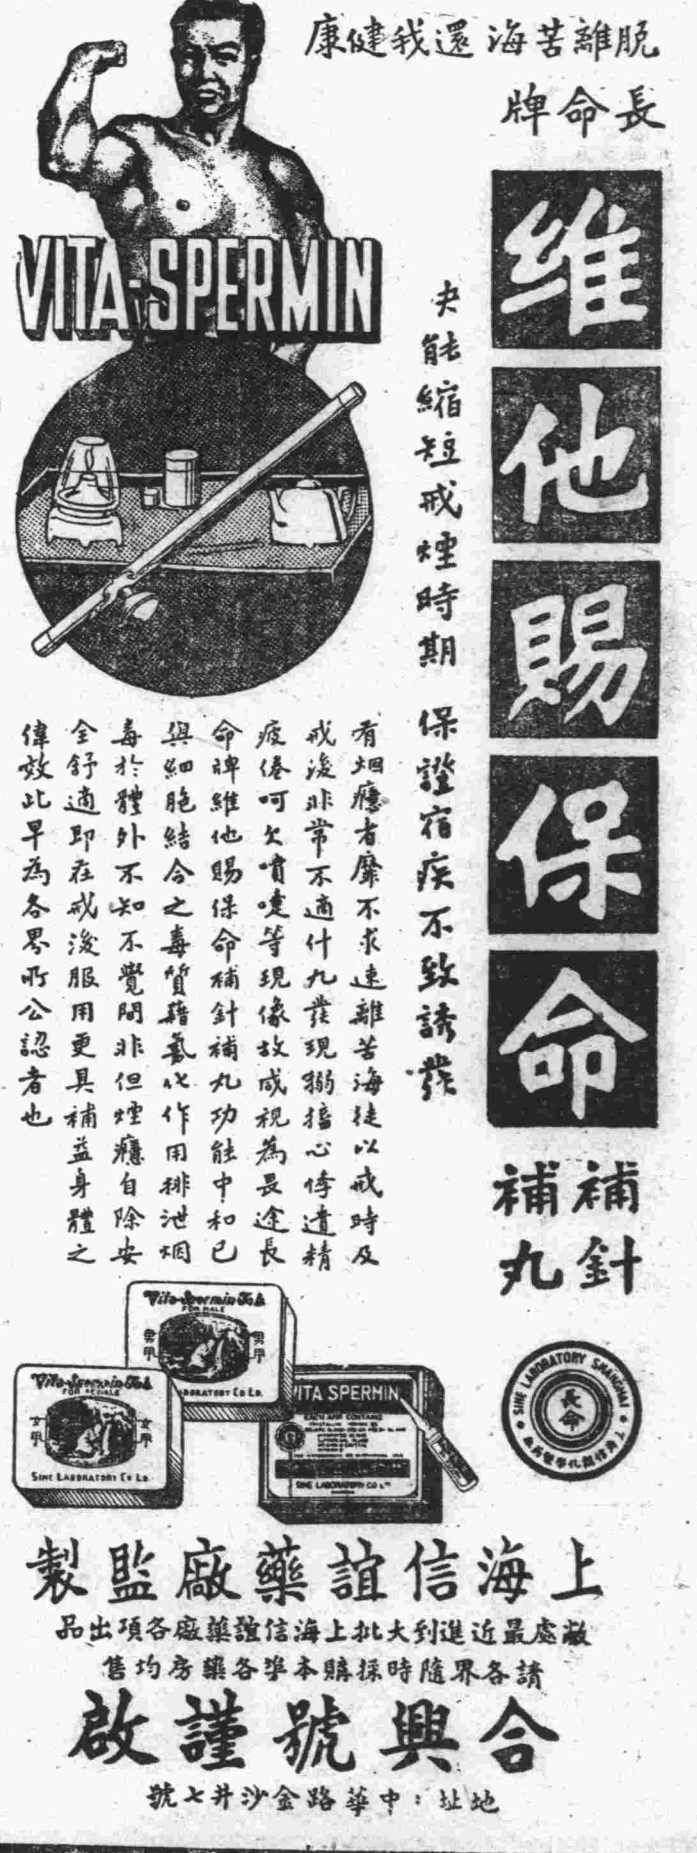 脫離苦海還我健康
長命牌
維他賜保命
補針
補丸
能縮短戒煙時期 保證宿疾不致誘發
VITA-SPERMIN
有烟癮者靡不求速離苦海徒以戒時及
戒後非常不適什九發現搐心悸遺精
疲倦呵欠噴嚏等現像故咸視為畏途長
命牌維他賜保命補針補丸功能中和已
與細胞結合之毒質藉氧化作用排泄烟
毒於體外不知不覺間非但煙癮自除安
全舒適即在戒後服用更具補益身體之
偉效此早為各界所公認者也
Vita-Spermin Tab
FOR MALE
男甲
男甲
LABORATORY Co LD.
Vita-Spermin Tab
FOR FEMALE
女甲
女甲
SINE LABORATORY Co LD.
VITA SPERMIN
EACH AMP CONTAINS
SINE LABORATORY CO LTD
SINE LABORATORY SHANGHAI
長命
上海信誼化學製藥廠
上海信誼藥廠監製
敝處最近進到大批上海信誼藥廠各項出品
請各界隨時採購本埠各藥房均售
合興號謹啟
地址：中華路金沙井七號